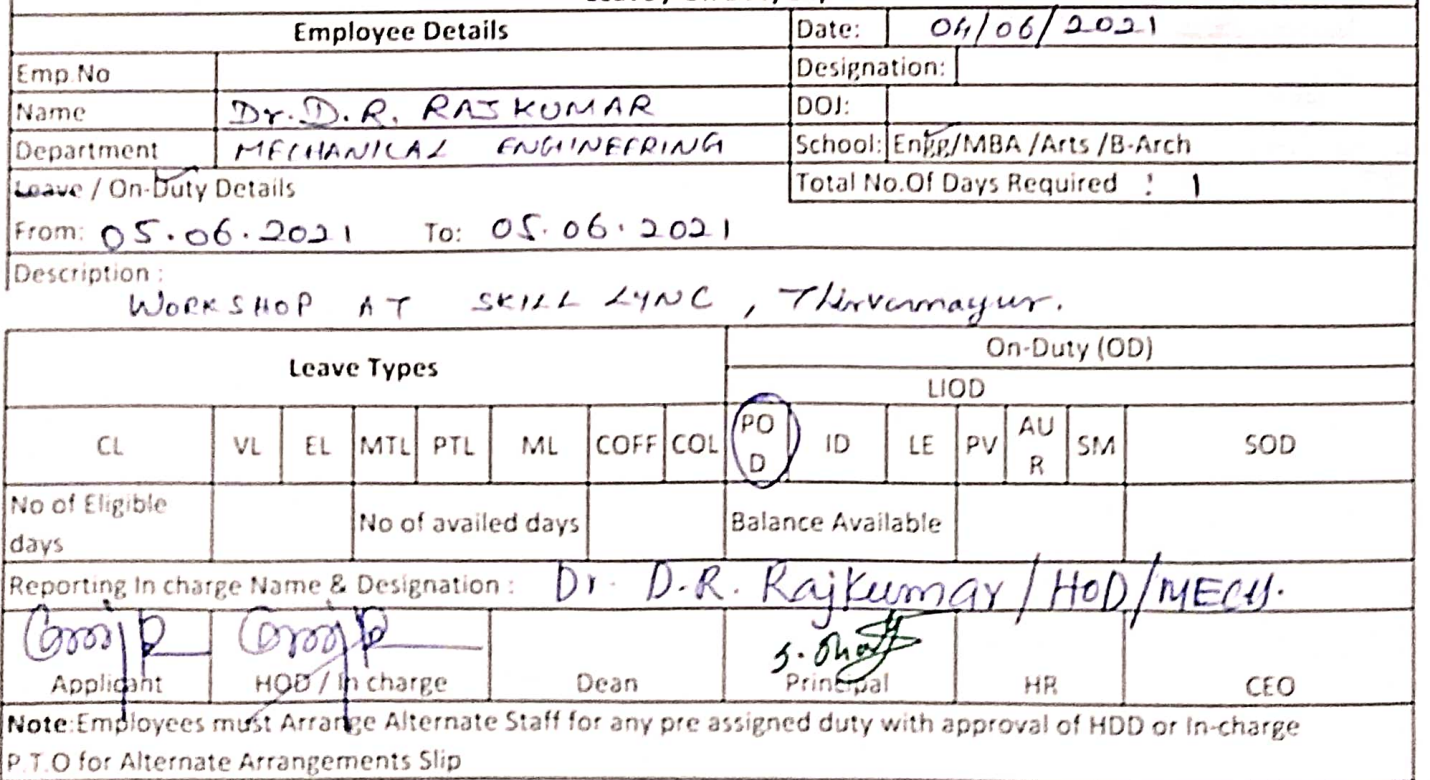 Employee Details Date: 04/06/2021
Emp.No Designation:
Name Dr. D. R. RAJKUMAR DOJ:
Department MECHANICAL ENGINEERING School: Engg/MBA /Arts /B-Arch
Leave / On-Duty Details Total No.Of Days Required : 1
From: 05.06.2021 To: 05.06.2021
Description :
WORKSHOP AT SKILL LYNC , Thiruvanmayur.
Leave Types On-Duty (OD)
LIOD
CL VL EL MTL PTL ML COFF COL POD ID LE PV AUR SM SOD
No of Eligible days No of availed days Balance Available
Reporting In charge Name & Designation : Dr. D.R. Rajkumar / HOD/MECH.
Applicant HOD / In charge Dean Principal HR CEO
Note:Employees must Arrange Alternate Staff for any pre assigned duty with approval of HDD or In-charge
P.T.O for Alternate Arrangements Slip